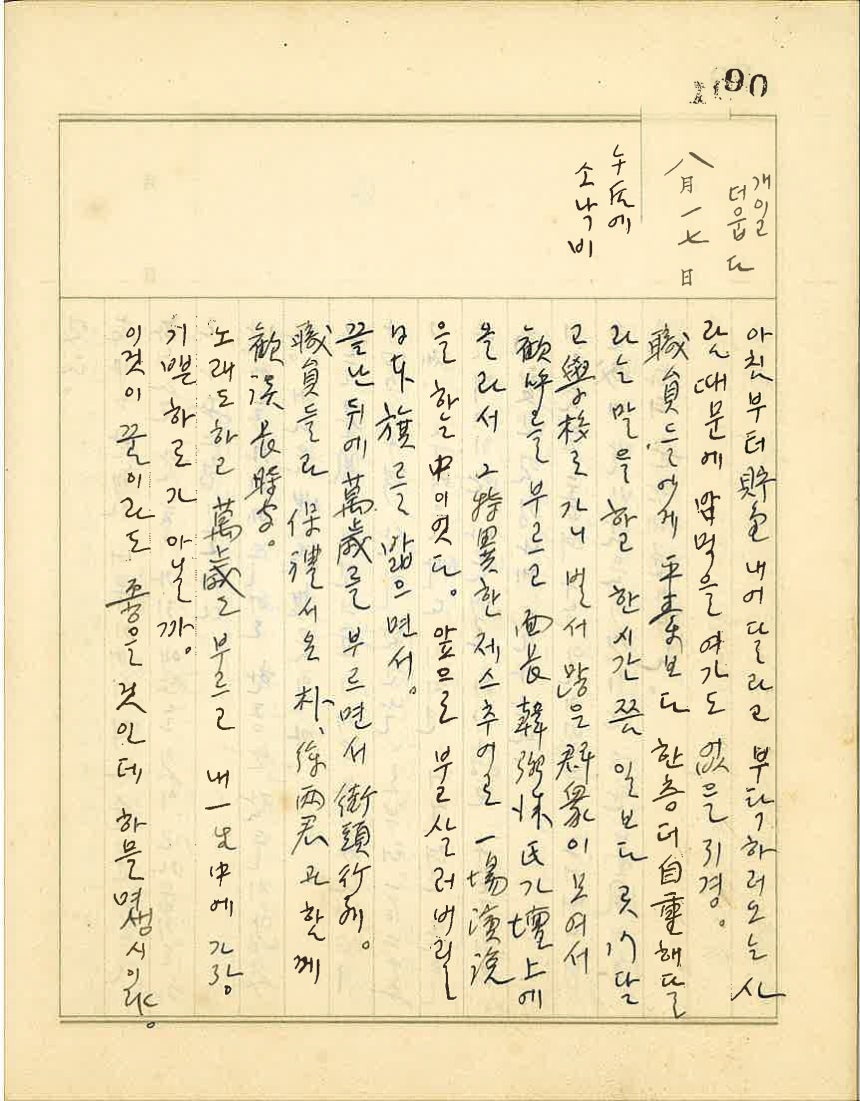 90
개이고
더웁다
八月一七日
午后에
소낙비
아침부터 貯金 내어달라고 부탁하러오는 사
람 때문에 밥먹을 여가도 없을 지경。
職員들에게 平素보다 한층더 自重해달
라는 말을 하고 한시간쯤 일보다 곳
고 學校로 가니 벌서 많은 群衆이 모여서
歡呼를 부르고 面長 韓 氏가 壇上에
올라서 그 特異한 제스추어로 一場演說
을 하는 中이엿다。 앞으로 불살러버릴
日本旗를 밟으면서。
끝난 뒤에 萬歲를 부르면서 街頭行列。
職員들과 서 온 朴、徐 兩君과 함께
歡談長時間。
노래도하고 萬歲도 부르고 내 一生中에 가장
기쁜 하로가 아닐까。
이것이 꿈이라도 좋을 것인데 하물며 생시이랴。